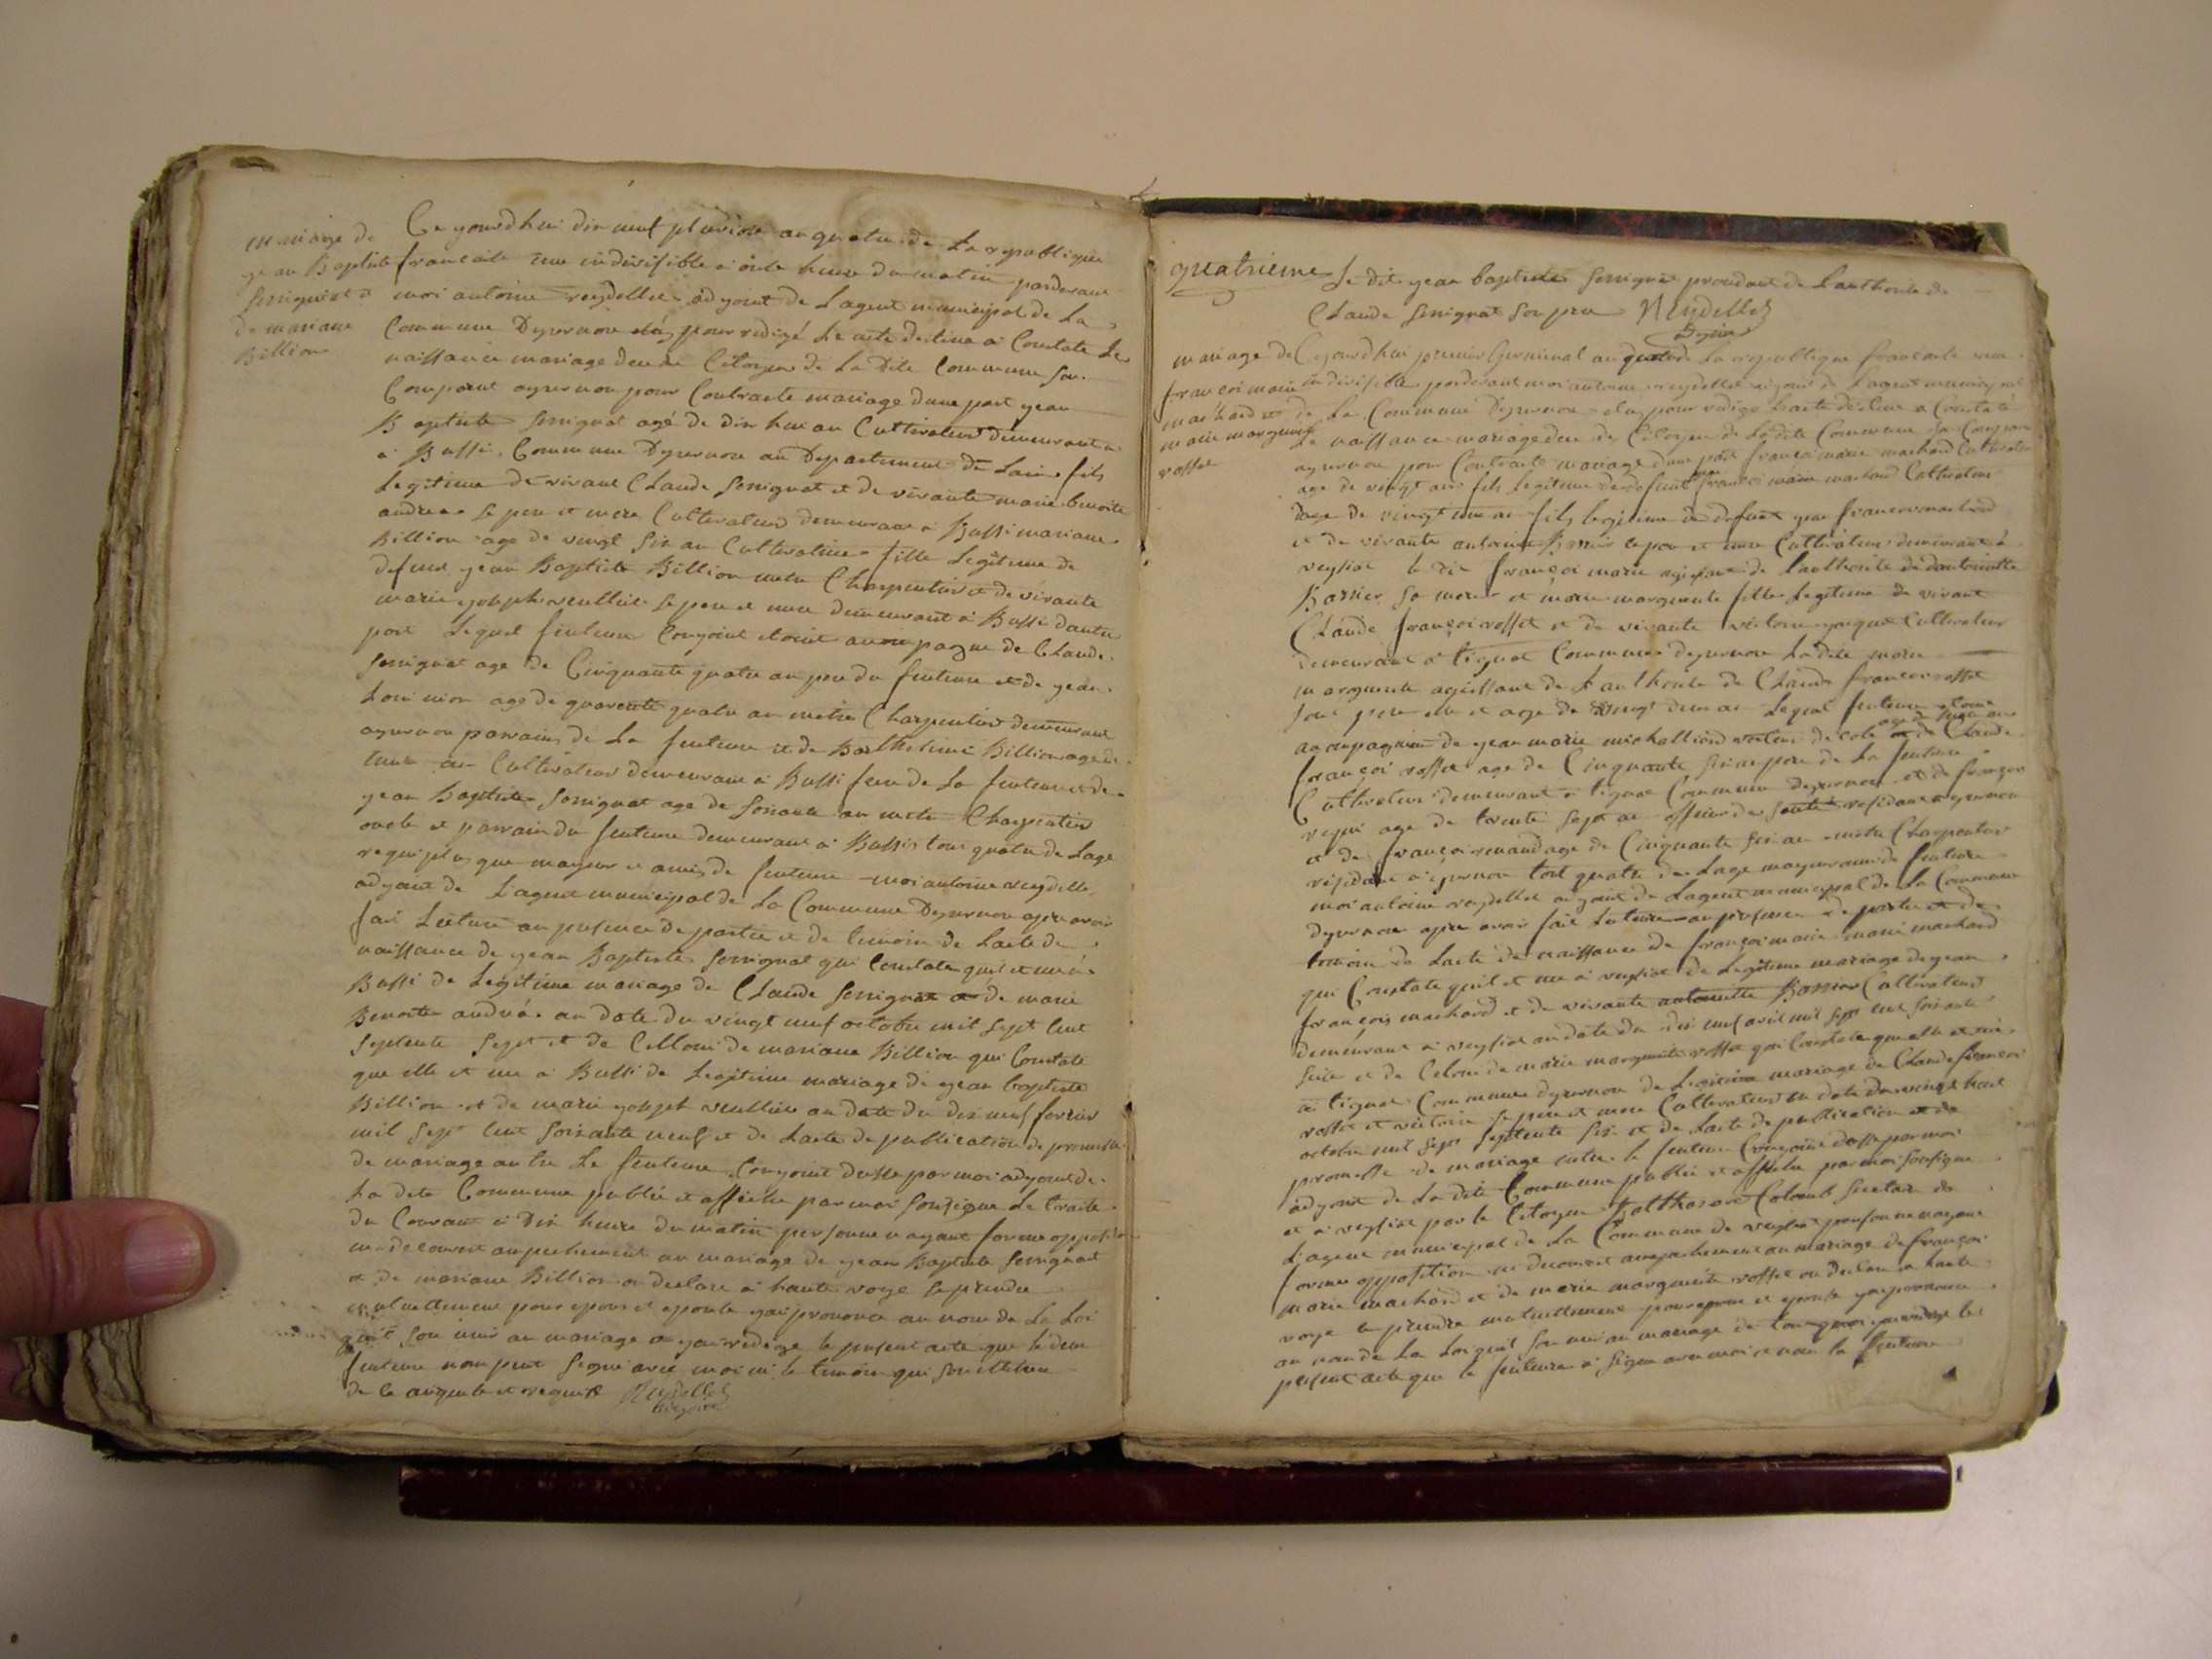 mariage de
gean Baptiste
senignat et
de mariane
Billion
Ce gourdhui dix neuf pluviose an quatre de La republique
francaise une indivisible a onse heure du matin pardevant
moi antoine reydellet adgoint de Lagent municipal de La
Commune Dizernore elus pour redigé Le acte destine a Constate Le
naissance mariage deces de Citoyen de La Dite Commune son
Comparut a
pour Contracte mariage dune part gean
Baptiste senignat agé de dix hui an Cultivateur demeurant a
a Bussi Commune Dizernore au Departement de Lain fils
Legitime de vivant Claude senignat et de vivante marie benoite
andrea se pere et mere Cultivateur demeurant a Bussi mariane
Billion age de vingt six an Cultivatrice fille Legitime de
defunt gean Baptiste Billion metre Charpentier et de vivante
marie goseph
se pere et mere demeurant a Bussi dautre
part Lequel fuuture Congoint etoint
de Claude
senignat age de Cinquante quatre an pere du fuuture et de gean
Loui
age de quarente quatre an metre Charpentier demeurant
parrain de La fuuture et de Barthelemi Billion age de
an Cultivateur demeurant a Bussi
de La fuuture et de
gean Baptiste senignat age de soisante an metre Charpentier
oncle et parrain du fuuture demeurant a Bussi tous quatre de Lage
requi plus que mageur et amis de fuuture moi antoine reydellet
adgoint de Lagent municipal de La Commune Dizernore apre avoir
fait Lecture an presence de partie et de temoin de Lacte de
naissance de gean Baptiste senignat qui Constate quil et né a
Bussi de Legitime mariage de Claude senignat et de marie
Benoite andréa an date du vingt neuf octobre mil sept cent
septente sept et de Celloui de mariane Billion qui Constate
que elle et née a Bussi de Legitime mariage de gean baptiste
Billion et de marie goseph
an date du dix neuf fevrier
mil sept cent soisante neuf et de Lacte de publication de promesse
de mariage antre Le fuuture Congoint
par moi adgoint de
La dete Commune publié et affiche par moi sousigne Le traite
du Courant a Dix heure du matin personne nayant forme opposition
ni decouvert anpechement au mariage de gean Baptiste senignat
et de mariane Billion on declare a haute voye se prendre
mutuellement pour epous et epouse gai prononce au nom de La Loi
quil son unis an mariage et gai redige le present acte que le deux
fuuture non peut signé avec moi ni le temoin qui
de ce anquete et requit Reydellet
adgoint
quatrieme Le dit gean baptiste senignat
de Lauthorite de
Claude senignat son pere Reydellet
adgoint
mariage de
francoi marie
machard et
marie marguerite
rosset
Cegourdhui premier Germinal an quatre de La republique francaise une
indivisible pardevant moi antoine reydellet adgoint de Lagent municipal
de La Commune Dizernore elus pour redige Lacte destine a Constaté
Le naissance mariage deces de Citoyen de Ladite Commune son Comparu
pour Contracte mariage dune part francoi marie machard Cultivateur
age de vingt
an fils Legitime de defunt
machard Cultivateur
dage de vingt
an fils legitime de defunt gean francoi machard
et de vivante antoinette Barrier se pere et mere Cultivateur demeurant a
veysiat le dit françoi marie agissant de Lauthorite de dantoinette
Barrier sa mere et marie marguerite fille Legitime de vivant
Claude françoi rosset et de vivante victoire
Cultivateur
demeurant a tignat Commune dizernore La dite marie
marguerite agissant de Lauthorite de Claude francoi rosset
son pere elle et age de vingt deux an Lequel fuuture etoint
acompagnie de gean marie michallion
decole et de Claude
françoi rosset age de Cinquante six an pere de La fuuture
Cultivateur demeurant a tignat Commune dizernore et de françoi
age de trente sept an officier de santé residant a
et de françoi
age de Cinquante six an metre Charpentier
residant a
tout quatre de Lage mageur ami de fuuture
moi antoine reydellet adgoint de Lagent municipal de La Commune
dizernore apre avoir fait Lecture an presence de partie et de
temoin de Lacte de naissance de françoi marie machard
qui Constate quil et né a veysiat de Legitime mariage de gean
francois machard et de vivante antoinette Barrier Cultivateur
demeurant a veysiat an date du dix neuf avril mil sept cent soisante
et de Celoui de marie marguerite rosset qui Constate que elle et née
a tignat Commune dizernore de Legitime mariage de Claude francoi
rosset et victoire
se pere et mere Cultivateur an date du vingt huit
octobre mil sept septente six et de Lacte de publication et de
promesse de mariage entre le fuuture Congoint
par moi
adgoint de La dite Commune publié et affiche par moi sousigne
et a veysiat par le Citoyen Balthasare Colomb
de
Lagent municipal de La Commune de veysiat personne nayant
forme opposition ni decouvert anpechement au mariage de françoi
marie machard et de marie marguerite rosset on declare a haute
voye se prendre mutuellement pour epous et epouse gai prononce
au nom de La Loi quil son uni an mariage
present acte que le fuuture a signe avec moi et non la fuuture